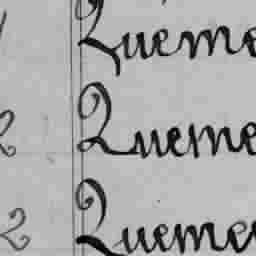 Queme
2 Queme
2 Queme